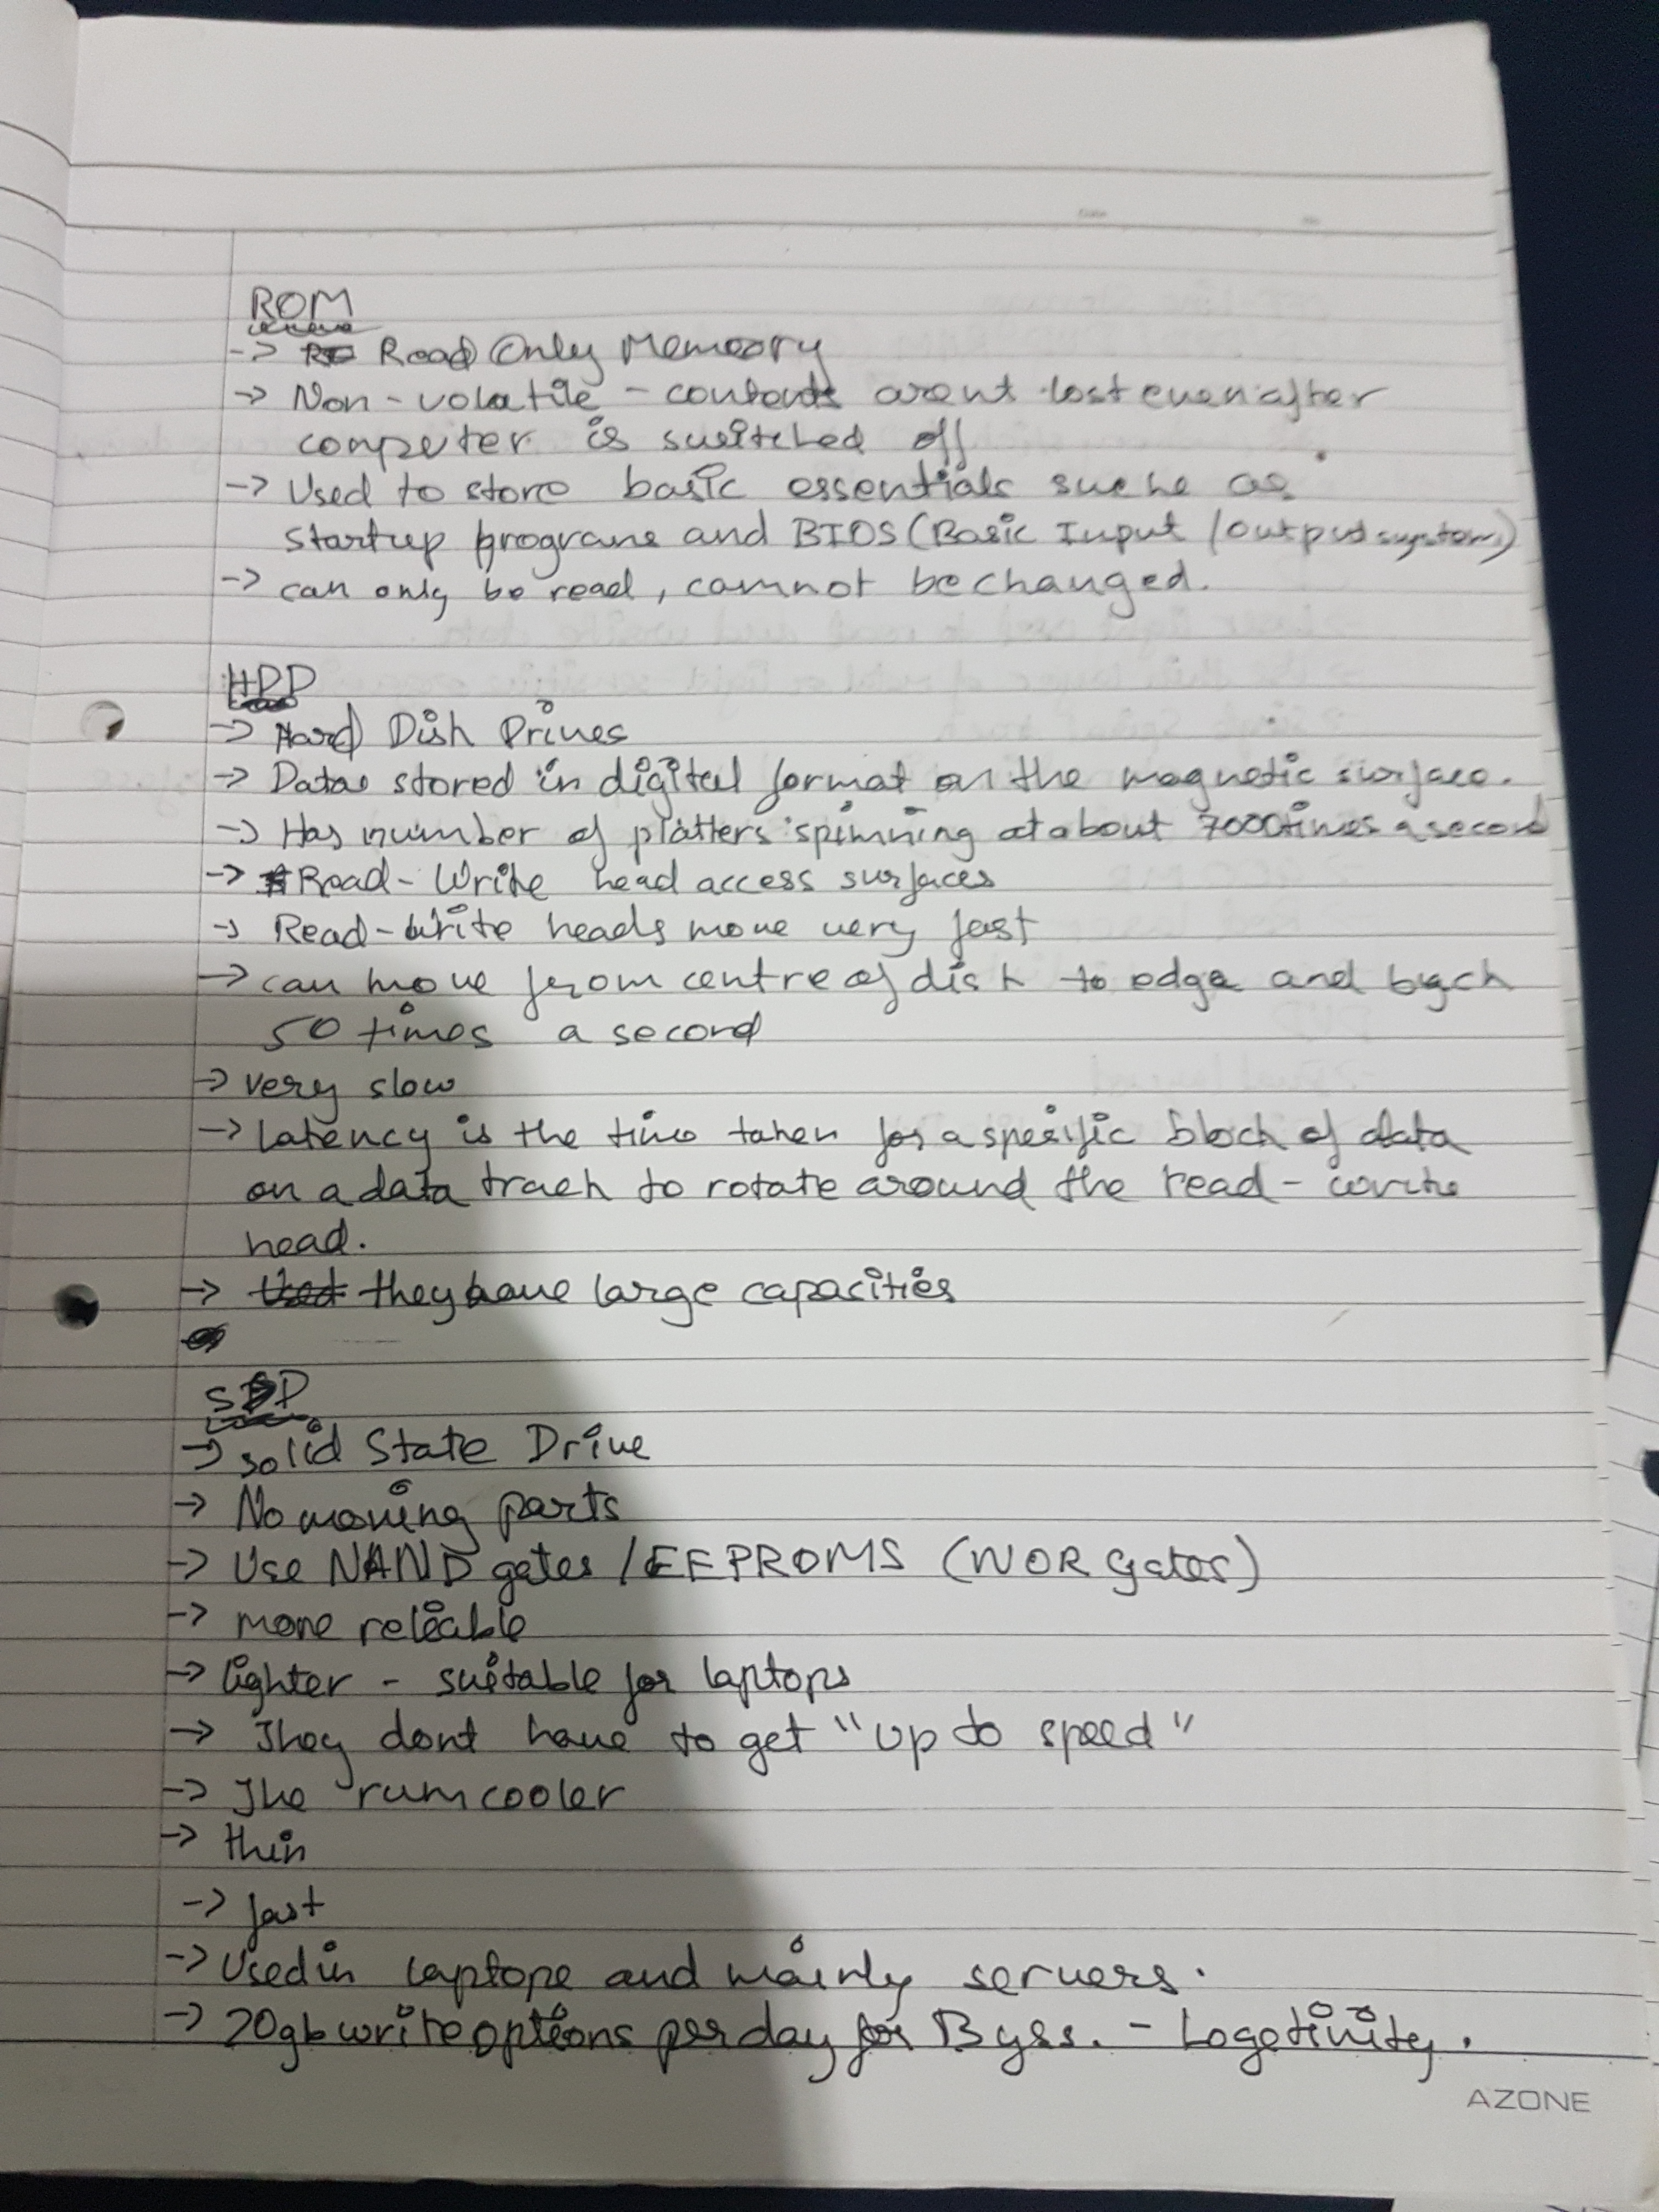 ROM
-> Read Only Memoory
-> Non-volatile - contents arent lost even after
computer is switched off
-> Used to store basic essentials suche as
startup programs and BIOS (Basic Input/output system)
-> can only be read, cannot be changed.
HDD
-> Hard Disk Drives
-> Data stored in digital format on the magnetic surface.
-> Has number of platters spinning at about 7000 times a second
-> Read-Write head access surfaces
-> Read-Write heads move very fast
-> can move from centre of disk to edge and back
50 times a second
-> very slow
-> Latency is the time taken for a specific block of data
on a data track to rotate around the read-write
head.
-> they have large capacities
SSD
-> Solid State Drive
-> No moving parts
-> Use NAND gates / EEPROMS (NOR gates)
-> more reliable
-> lighter - suitable for laptops
-> They dont have to get "up to speed"
-> The run cooler
-> thin
-> fast
-> Used in laptops and mainly servers.
-> 20gb write options per day for 3 yrs. -
AZONE